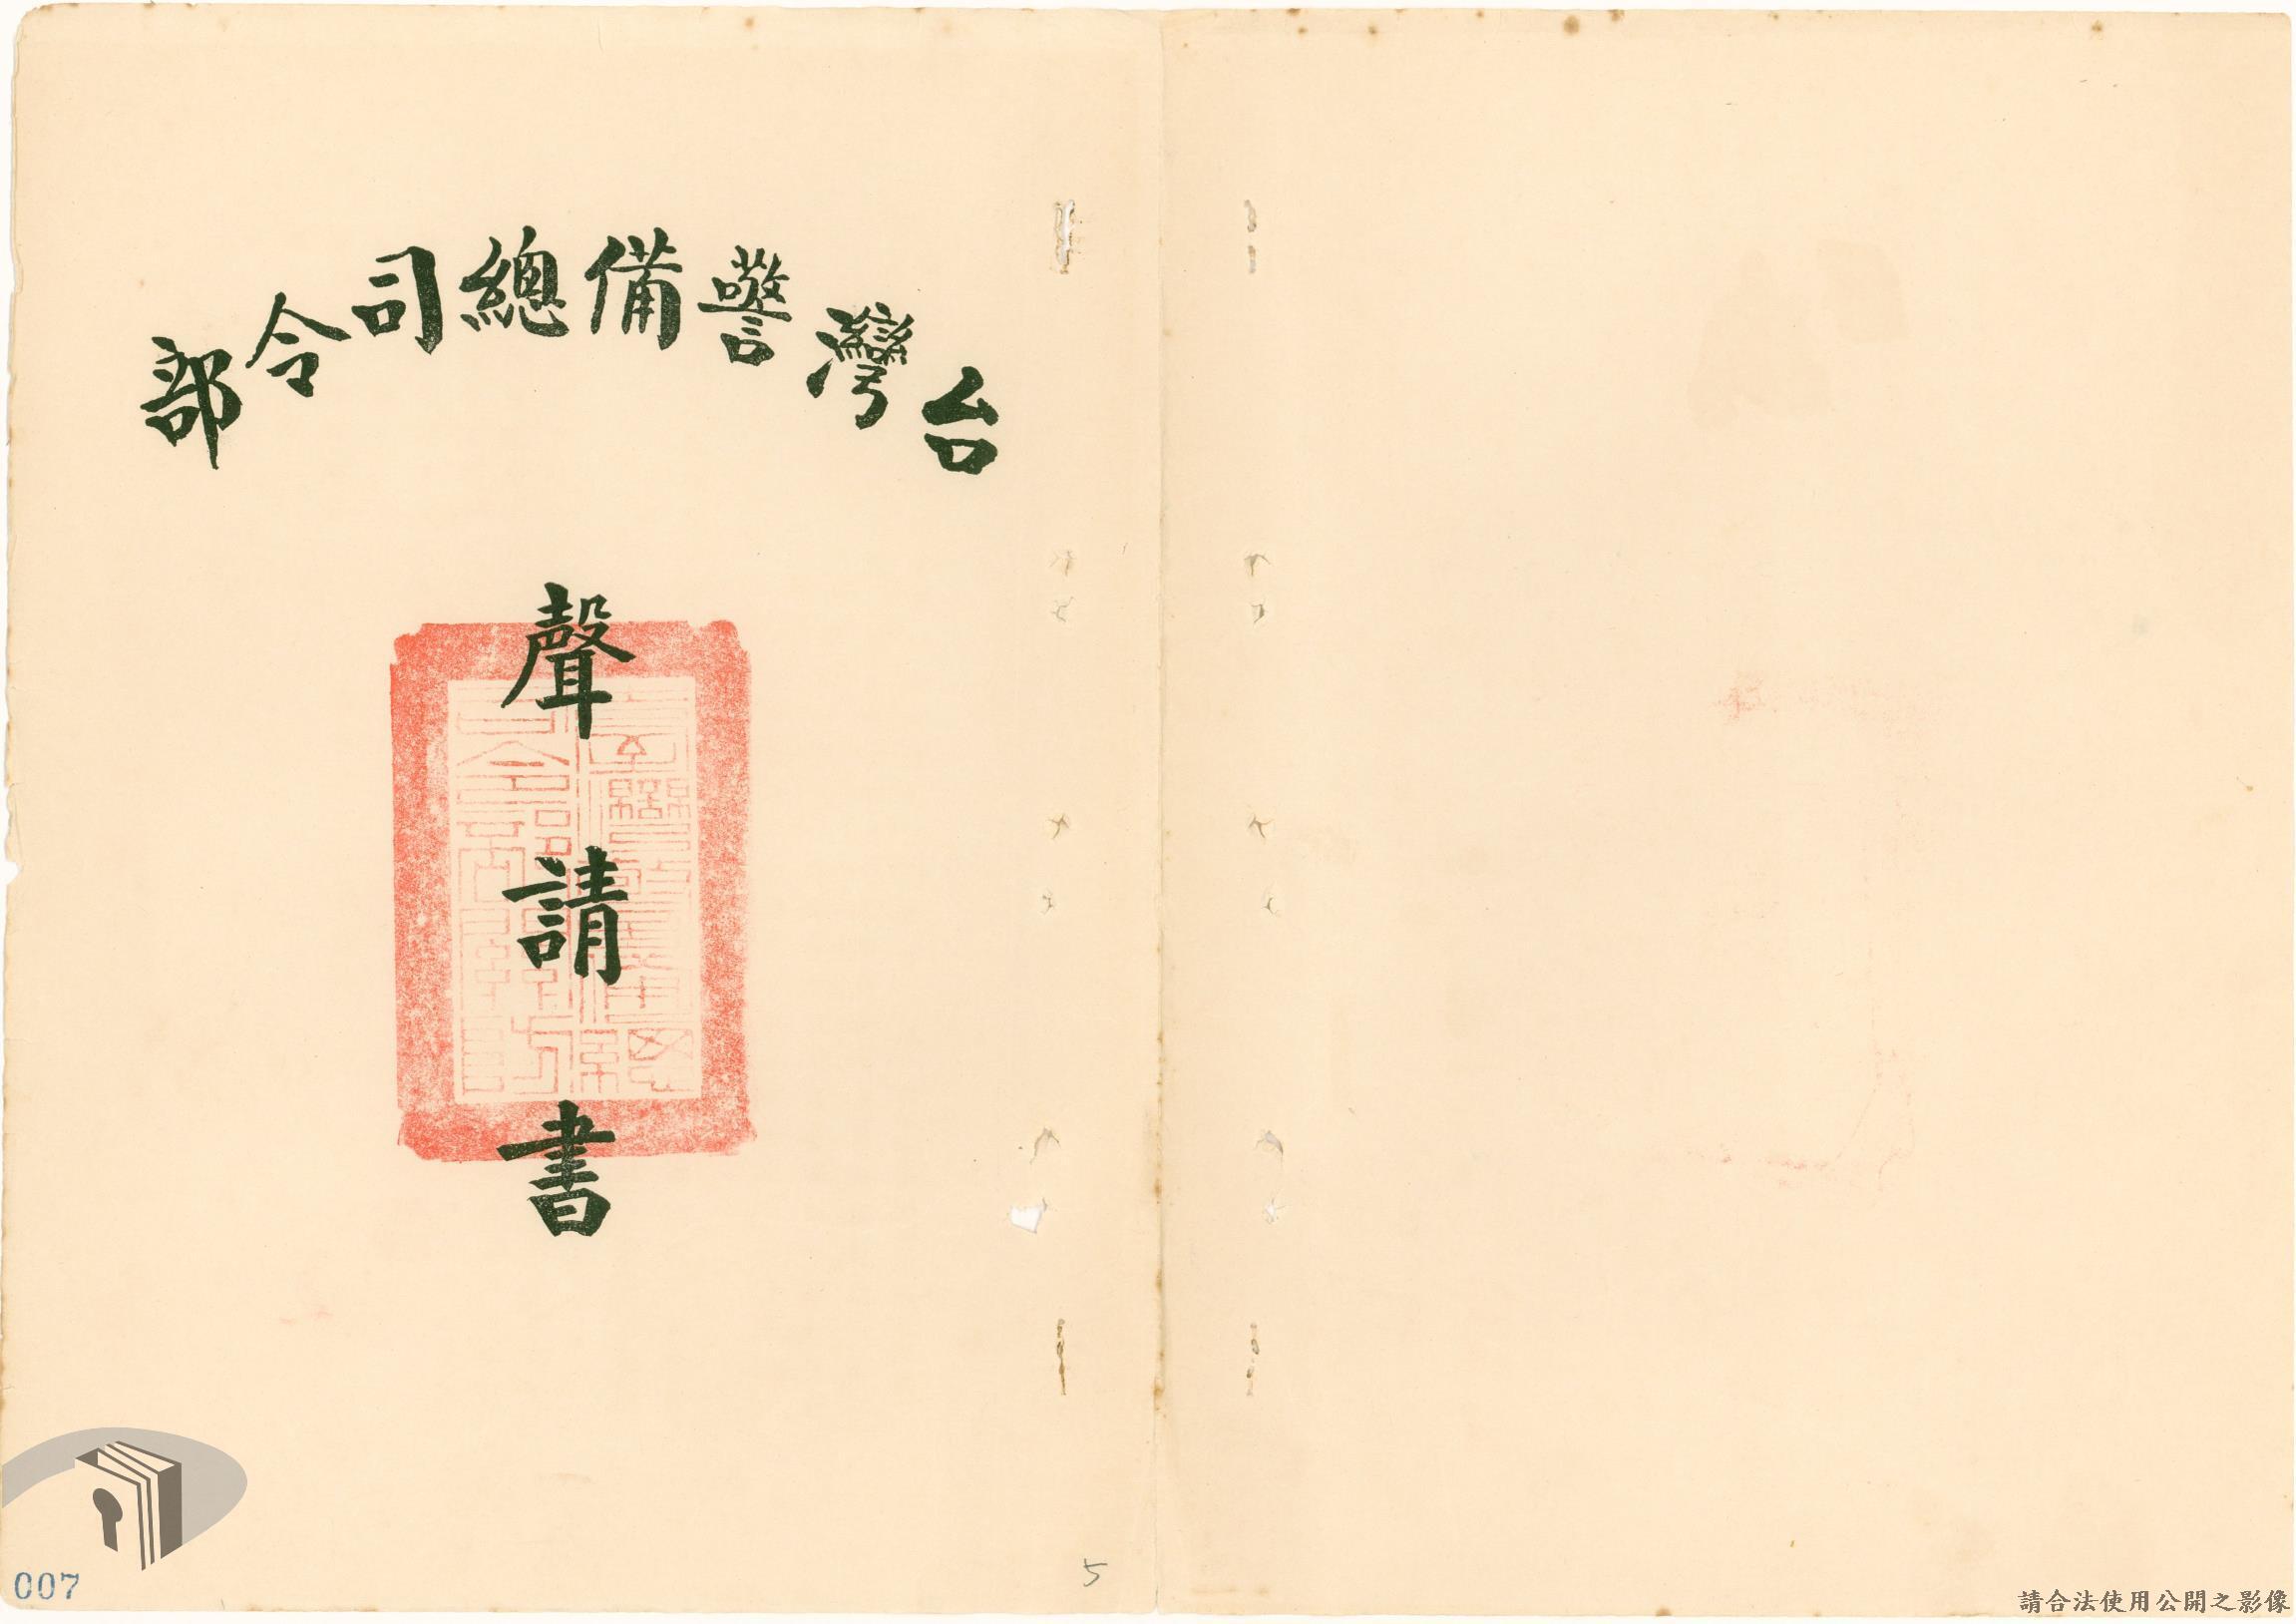 台灣警備總司令部
聲請書
007
5
請合法使用公開之影像